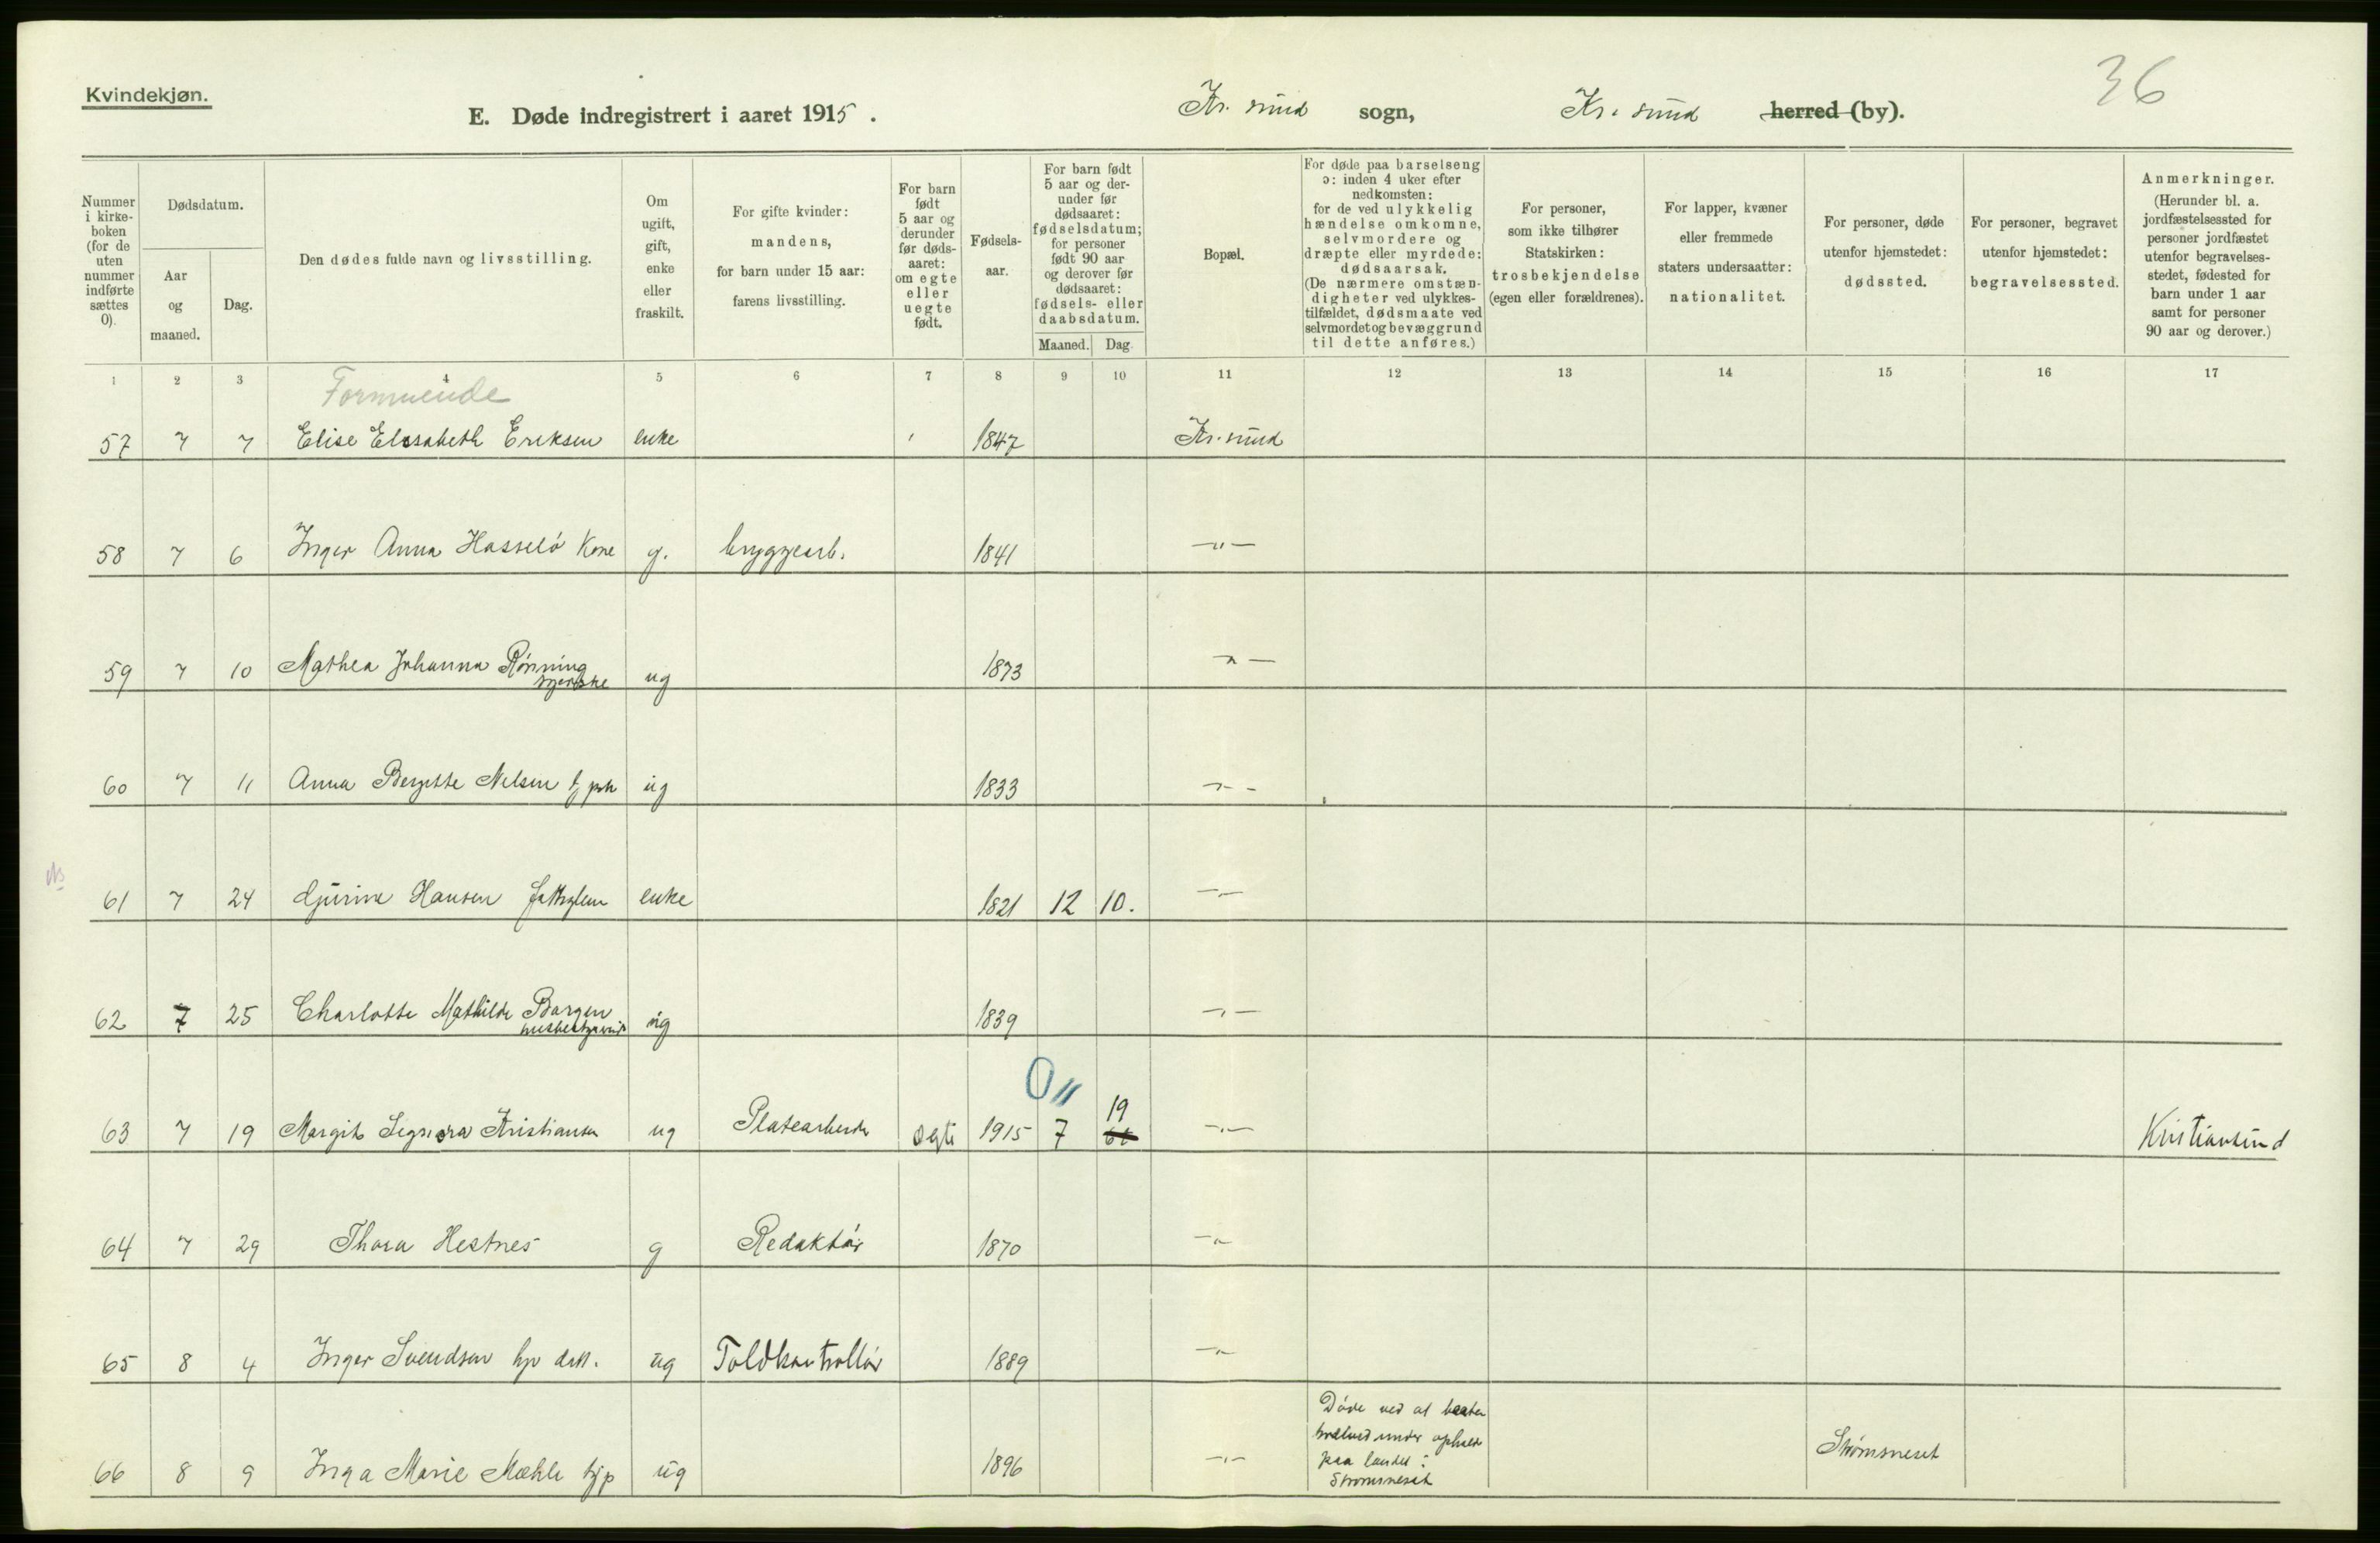 Kvindekjøn.
36
E. Døde indregistrert i aaret 1915.
Kr. sund sogn, Kr. sund herred (by).
Nummer i kirke-boken (for de uten nummer indførte sættes 0).
Dødsdatum.
Aar og maaned.
Dag.
Den dødes fulde navn og livsstilling.
Om ugift, gift, enke eller fraskilt.
For gifte kvinder: mandens, for barn under 15 aar: farens livsstilling.
For barn født 5 aar og derunder før døds-aaret: om egte eller uegte født.
Fødsels-aar.
For barn født 5 aar og der-under før dødsaaret: fødselsdatum; for personer født 90 aar og derover før dødsaaret: fødsels- eller daabsdatum.
Maaned. Dag.
Bopæl.
For døde paa barselseng ɔ: inden 4 uker efter nedkomsten: for de ved ulykkelig hændelse omkomne, selvmordere og dræpte eller myrdede: dødsaarsak. (De nærmere omstæn-digheter ved ulykkes-tilfældet, dødsmaate ved selvmordet og bevæggrund til dette anføres.)
For personer, som ikke tilhører Statskirken: trosbekjendelse (egen eller forældrenes).
For lapper, kvæner eller fremmede staters undersaatter: nationalitet.
For personer, døde utenfor hjemstedet: dødssted.
For personer, begravet utenfor hjemstedet: begravelsessted.
Anmerkninger. (Herunder bl. a. jordfæstelsessted for personer jordfæstet utenfor begravelses-stedet, fødested for barn under 1 aar samt for personer 90 aar og derover.)
1 2 3 4 5 6 7 8 9 10 11 12 13 14 15 16 17
Formuende
57 7 7 Elise Elisabeth Eriksen enke 1847 Kr. sund
58 7 6 Inger Anna Hasselö Kone g. bryggearb. 1841 —"—
59 7 10 Mathea Johanna Rönning
syerske ug 1873 —"—
60 7 11 Anna Bergitte Nelsen ug 1833 —"—
61 7 24 Gjurine Hansen enke 1821 12 10. —"—
62 7 25 Charlotte Mathilde Borgen
ug 1839 —"—
0 11
19
63 7 19 Margit Signora Kristiansen ug Platearbeider ægte 1915 7 —"— Kristiansund
64 7 29 Thora Hestnes g Redaktör 1870 —"—
65 8 4 Inger Svendsen hj. datt. ug Toldkontrollör 1889 —"—
Döde ved at baaten
hvelvet under ophold
paa landet i
Strömsneset
66 8 9 Inga Marie Mæhle tjp ug 1896 —"— Strömsneset